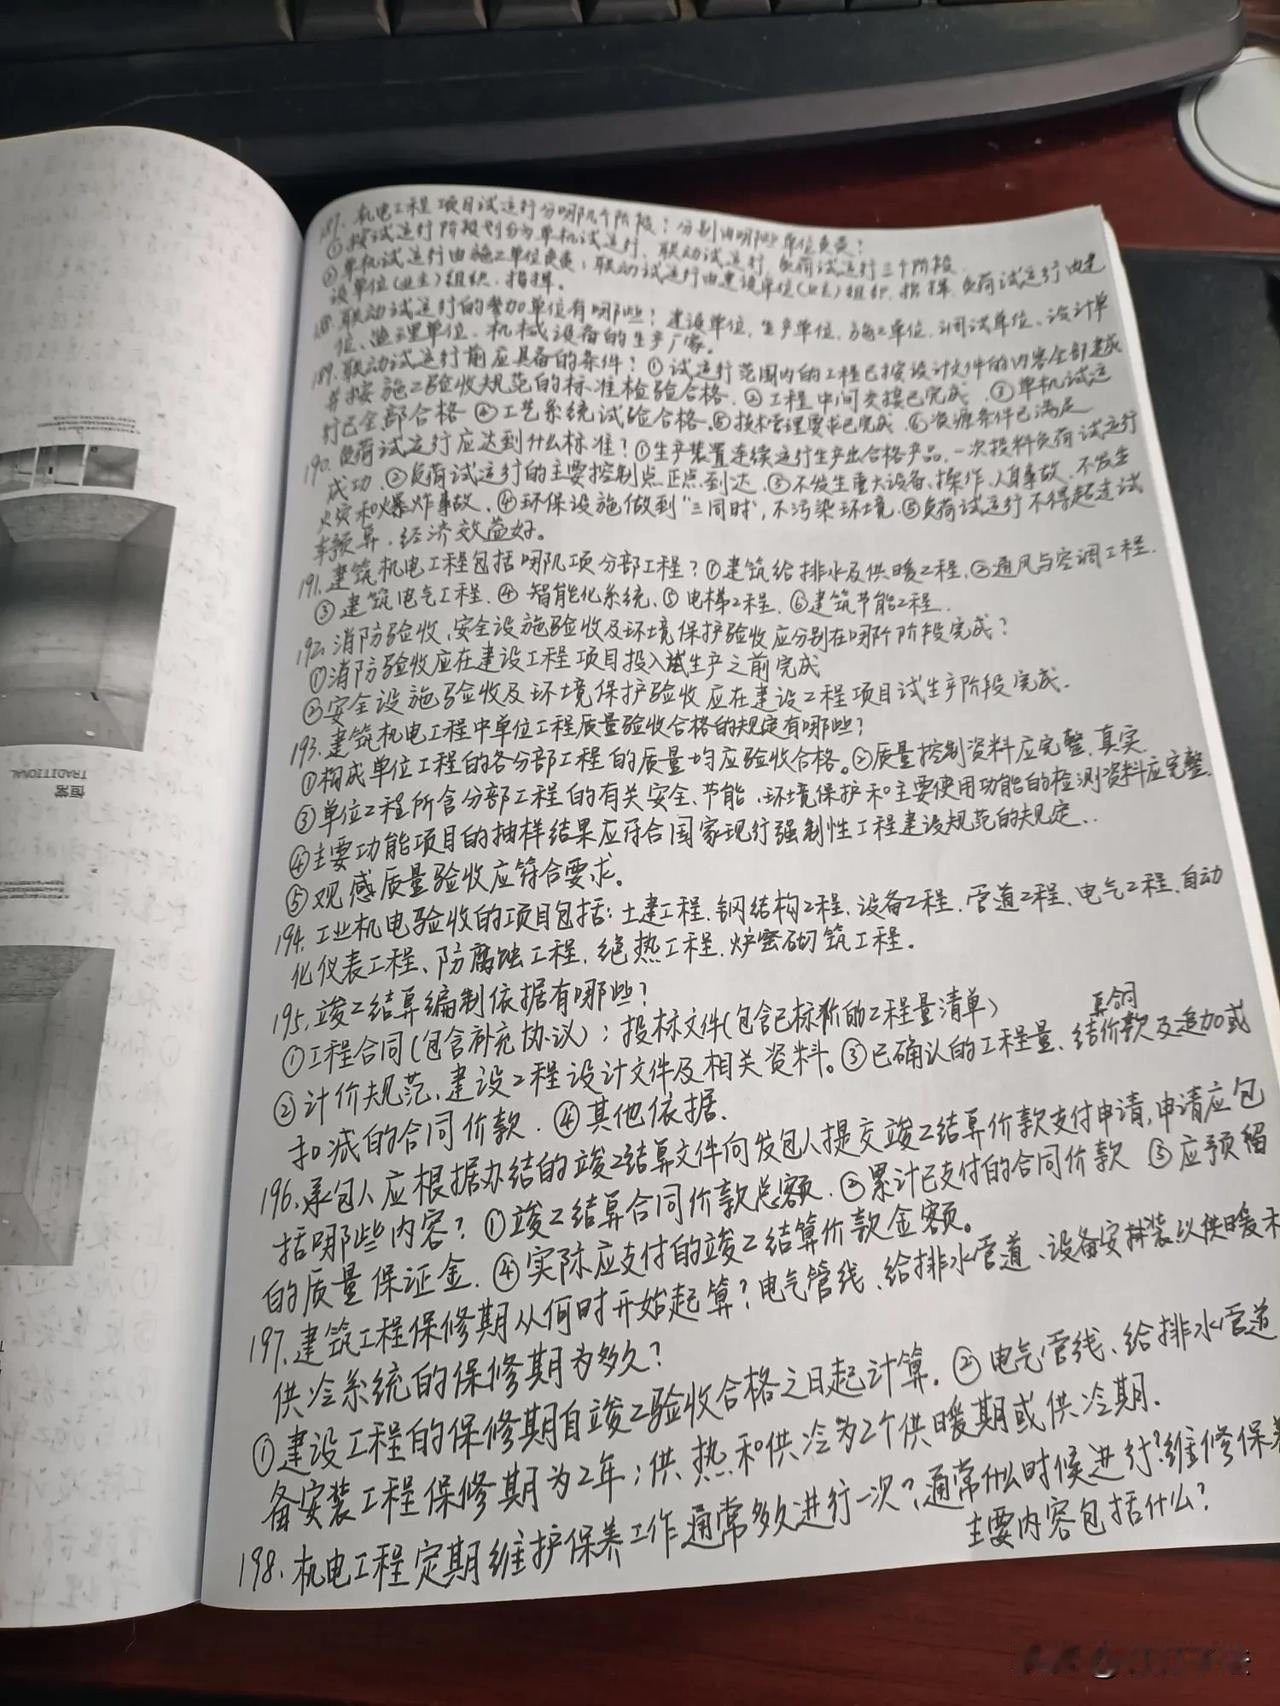 187. 机电工程项目试运行分哪几个阶段？分别由哪些单位负责？
①按试运行阶段划分为单机试运行、联动试运行、负荷试运行三个阶段.
②单机试运行由施工单位负责，联动试运行由建设单位(业主)组织、指挥. 负荷试运行由建
设单位(业主)组织、指挥。
188. 联动试运行的参加单位有哪些？建设单位、生产单位、施工单位、调试单位、设计单
位、监理单位、机械设备的生产厂家。
189. 联动试运行前应具备的条件？①试运行范围内的工程已按设计文件的内容全部建成
并按施工验收规范的标准检验合格. ②工程中间交接已完成. ③单机试运
行已全部合格④工艺系统试验合格.⑤技术管理要求已完成.⑥资源条件已满足
190. 负荷试运行应达到什么标准？①生产装置连续运行生产出合格产品，一次投料负荷试运行
成功.②负荷试运行的主要控制点正点到达.③不发生重大设备、操作、人身事故，不发生
火灾和爆炸事故.④环保设施做到“三同时”，不污染环境.⑤负荷试运行不得超过试
车预算，经济效益好。
191. 建筑机电工程包括哪几项分部工程？①建筑给排水及供暖工程.②通风与空调工程.
③建筑电气工程.④智能化系统.⑤电梯工程.⑥建筑节能工程.
192. 消防验收、安全设施验收及环境保护验收应分别在哪个阶段完成？
①消防验收应在建设工程项目投入试生产之前完成
②安全设施验收及环境保护验收应在建设工程项目试生产阶段完成.
193. 建筑机电工程中单位工程质量验收合格的规定有哪些？
①构成单位工程的各分部工程的质量均应验收合格。②质量控制资料应完整、真实
③单位工程所含分部工程的有关安全、节能、环境保护和主要使用功能的检测资料应完整.
④主要功能项目的抽样结果应符合国家现行强制性工程建设规范的规定..
⑤观感质量验收应符合要求。
194. 工业机电验收的项目包括：土建工程、钢结构工程、设备工程、管道工程、电气工程、自动
化仪表工程、防腐蚀工程、绝热工程、炉窑砌筑工程。
195. 竣工结算编制依据有哪些？
①工程合同(包含补充协议)；投标文件(包含已标价的工程量清单)
②计价规范、建设工程设计文件及相关资料。③已确认的工程量、结算合同价款及追加或
扣减的合同价款.④其他依据.
196. 承包人应根据办结的竣工结算文件向发包人提交竣工结算价款支付申请，申请应包
括哪些内容？①竣工结算合同价款总额.②累计已支付的合同价款 ③应预留
的质量保证金.④实际应支付的竣工结算价款金额。
197. 建筑工程保修期从何时开始起算？电气管线、给排水管道、设备安装以供暖和
供冷系统的保修期为多久？
①建设工程的保修期自竣工验收合格之日起计算.②电气管线、给排水管道
备安装工程保修期为2年；供热和供冷为2个供暖期或供冷期.
198. 机电工程定期维护保养工作通常多久进行一次？通常什么时候进行？维修保养
主要内容包括什么？
恒常
TRADITIONAL